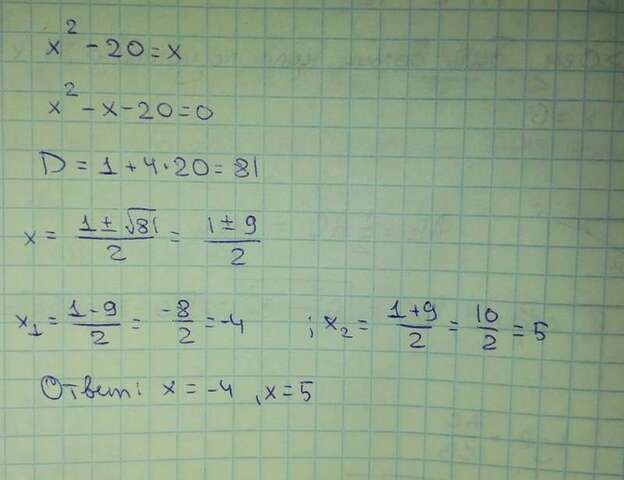 x² - 20 = x
x² - x - 20 = 0
D = 1 + 4 · 20 = 81
x = (1 ± √81)/2 = (1 ± 9)/2
x₁ = (1 - 9)/2 = -8/2 = -4 ; x₂ = (1 + 9)/2 = 10/2 = 5
Ответ: x = -4, x = 5